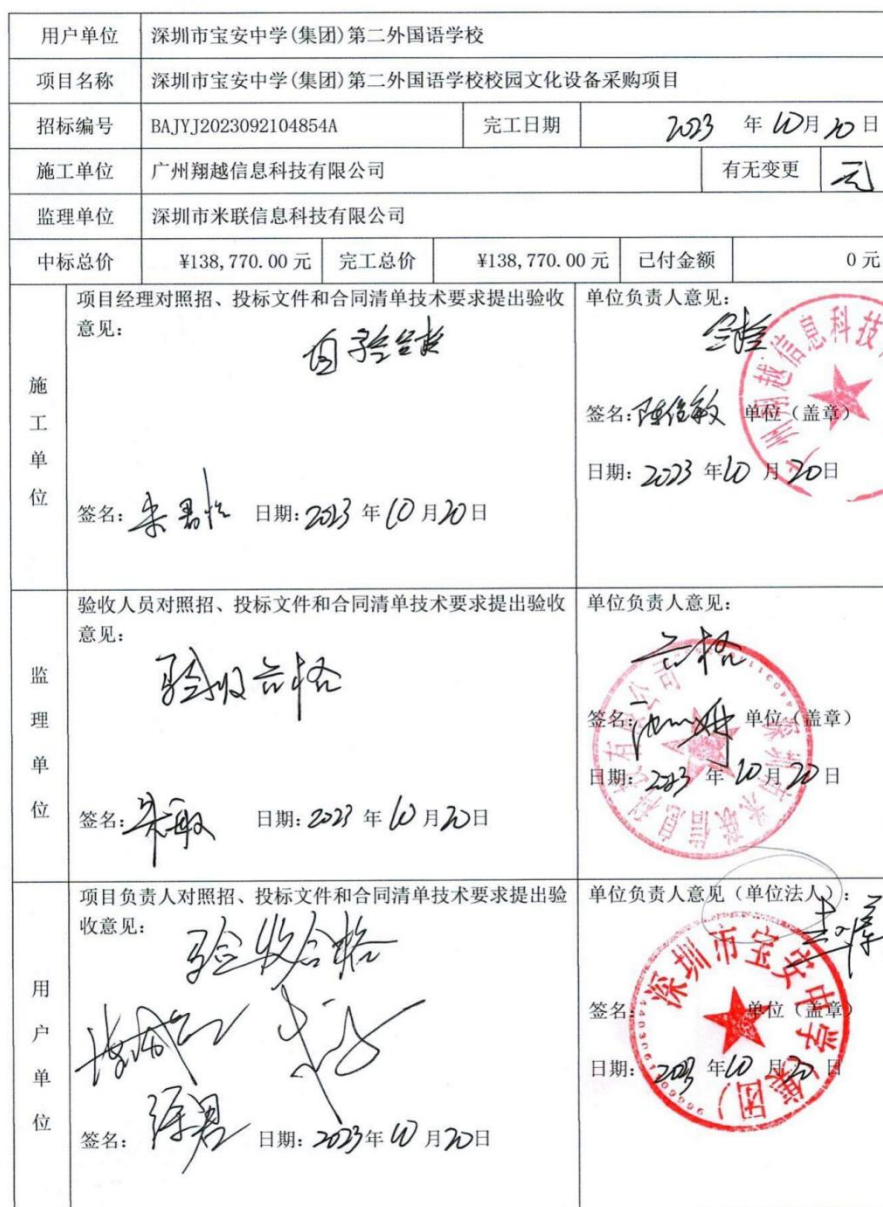 用户单位 深圳市宝安中学(集团)第二外国语学校
项目名称 深圳市宝安中学(集团)第二外国语学校校园文化设备采购项目
招标编号 BAJYJ2023092104854A 完工日期 2023 年 10月20日
施工单位 广州翔越信息科技有限公司 有无变更 无
监理单位 深圳市米联信息科技有限公司
中标总价 ¥138,770.00元 完工总价 ¥138,770.00元 已付金额 0元
施工单位
项目经理对照招、投标文件和合同清单技术要求提出验收
意见:
签名: 日期:2023年10月20日
单位负责人意见:
合格
签名:陈俊敏 单位(盖章)
日期:2023年10月20日
广州翔越信息科技
监理单位
验收人员对照招、投标文件和合同清单技术要求提出验收
意见:
验收合格
签名:朱敏 日期:2023年10月20日
单位负责人意见:
合格
签名: 单位(盖章)
日期:2023年10月20日
深圳市米联信息科技有限公司
用户单位
项目负责人对照招、投标文件和合同清单技术要求提出验
收意见:
验收合格
签名: 日期:2023年10月20日
单位负责人意见(单位法人):
签名: 单位(盖章)
日期:2023年10月20日
深圳市宝安中学(集团)